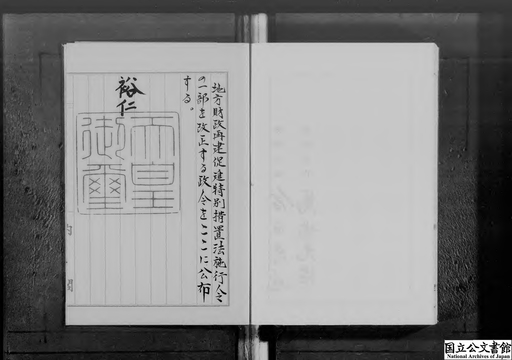 地方財政再建促進特別措置法施行令
の一部を改正する政令をここに公布
する。
裕仁
天皇
御璽
国立公文書館
National Archives of Japan